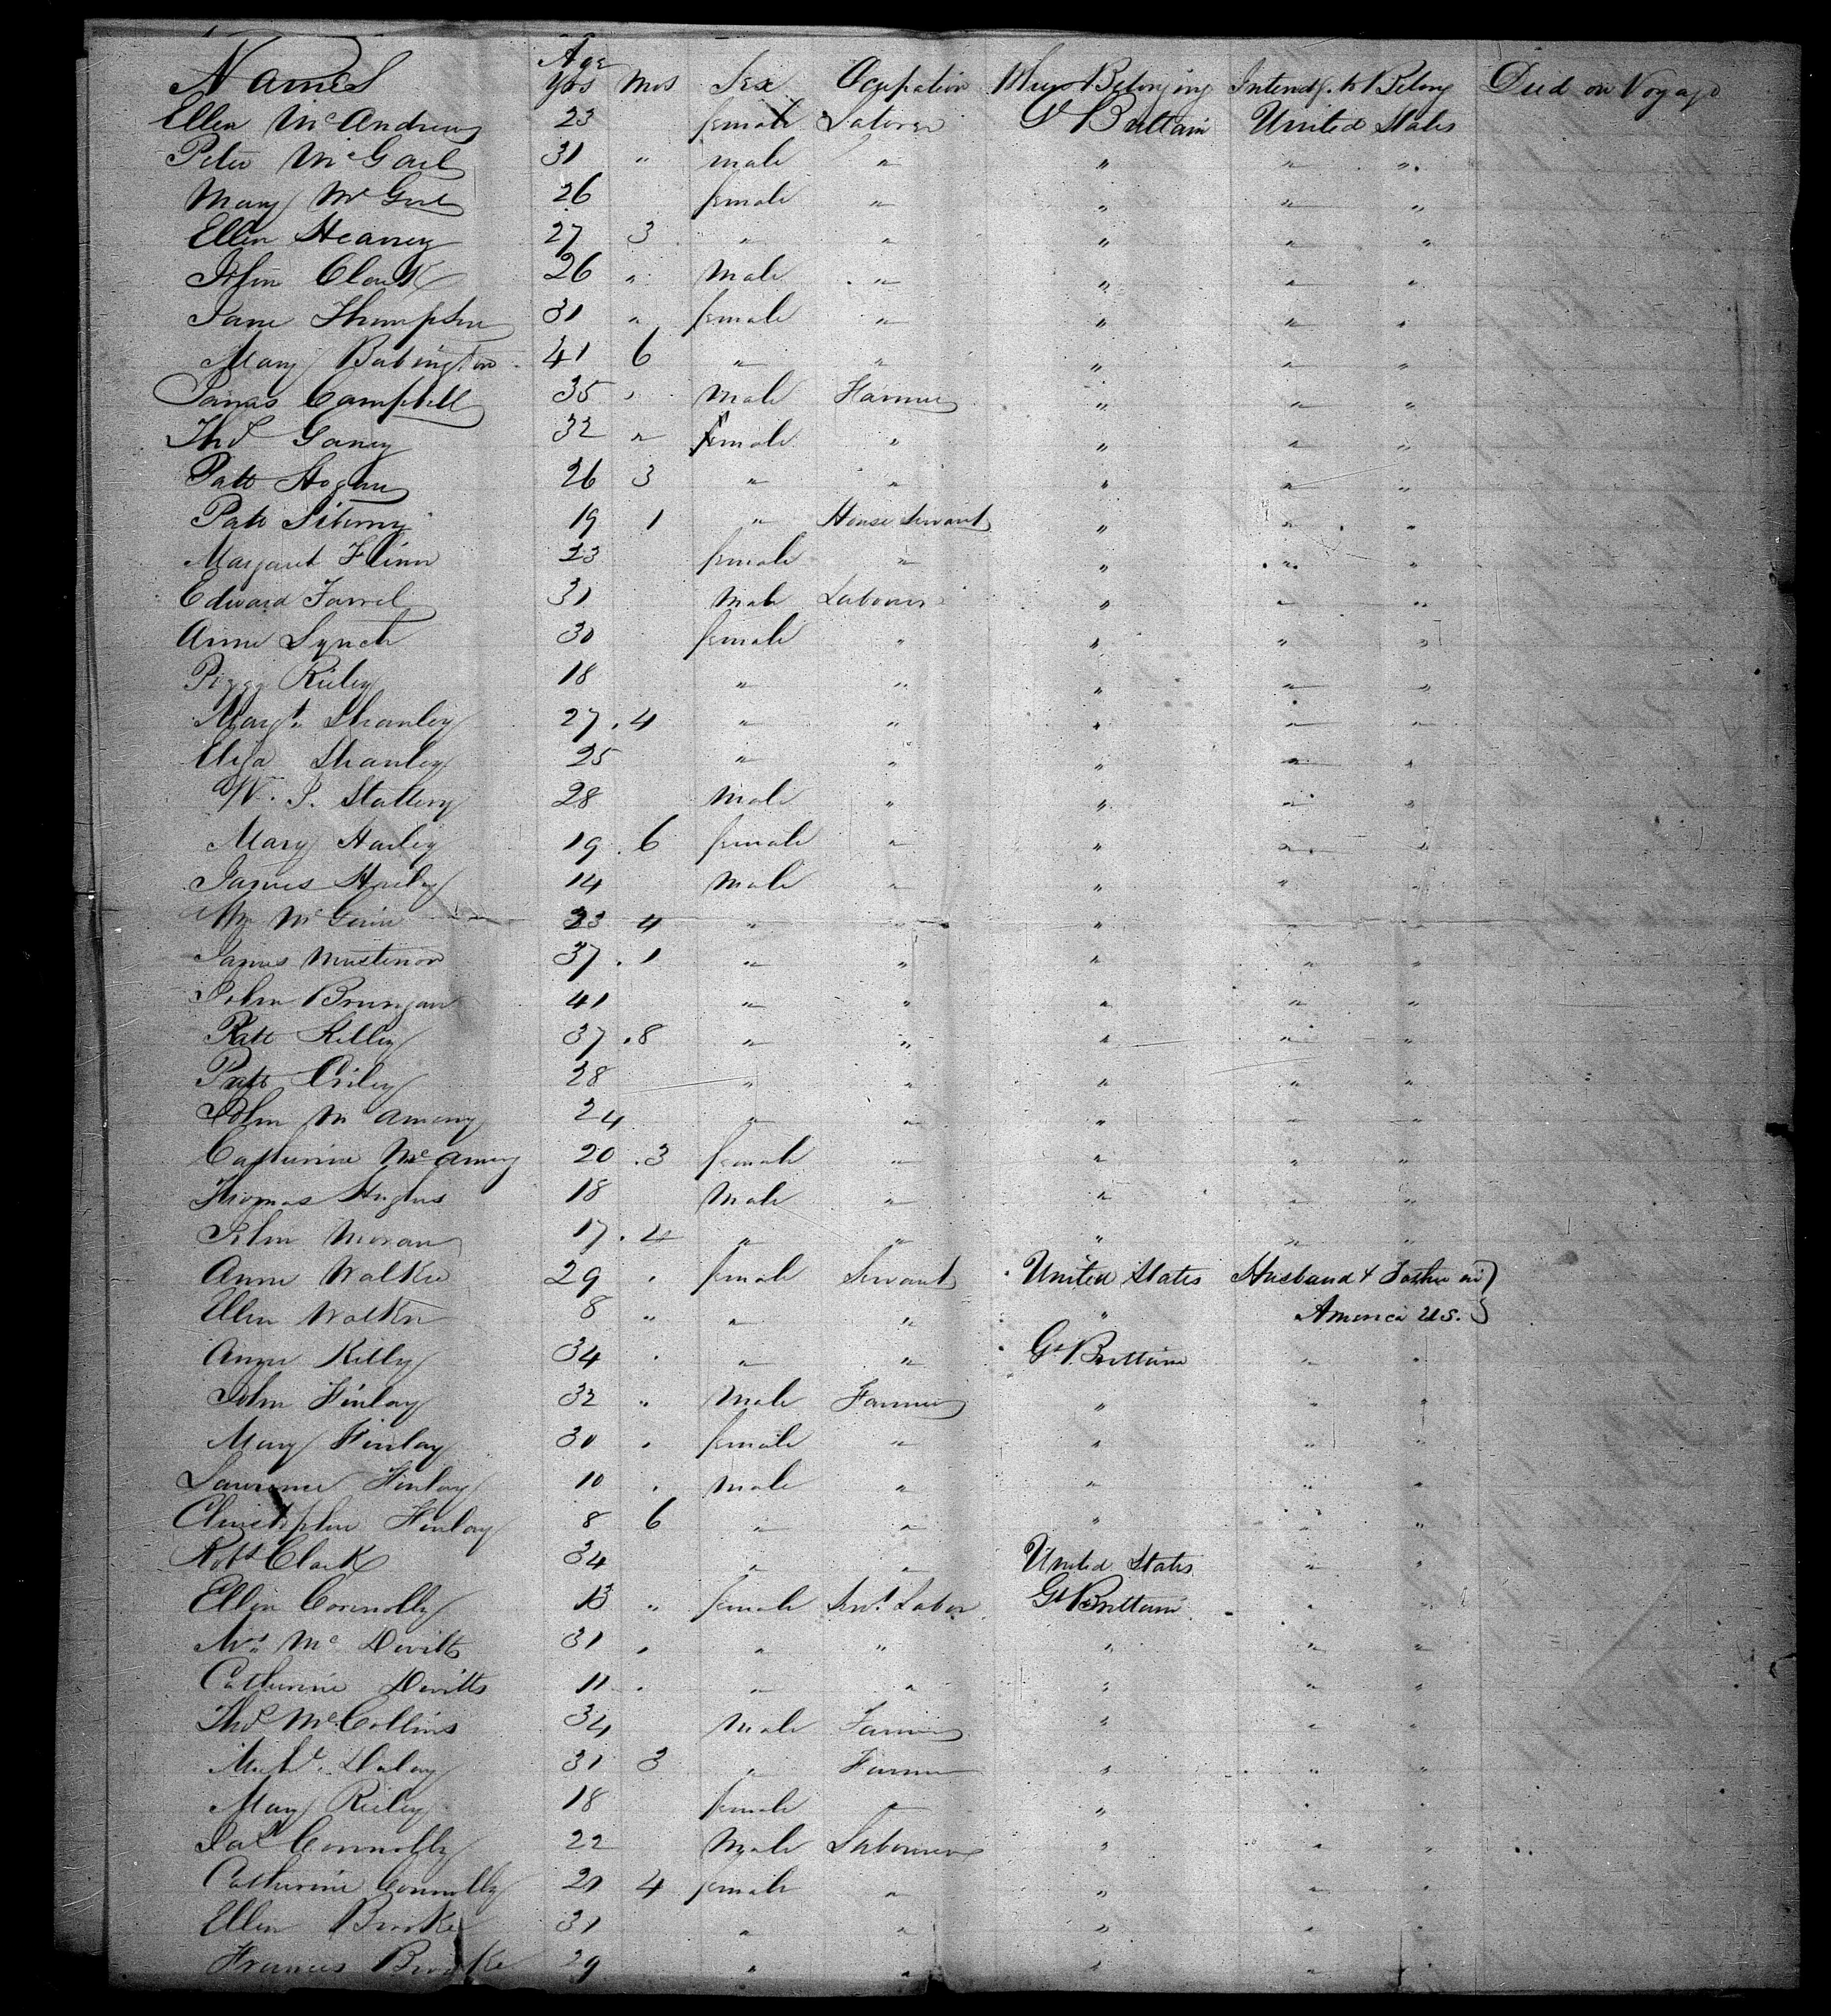 Names Age Yrs Mos Sex Ocupation Where Belonging Intendg. to Belong Died on Voyage
Ellen McAndrew 23 female Laborer Gt Brittain United States
Peter McGail 31 " male " " " "
Mary McGail 26 female " " " "
Ellen Heaney 27 3 " " " " "
John Clark 26 " Male " " " "
Jane Thompson 31 " female " " " "
Mary Babington 41 6 " " " " "
James Campbell 35 " Male Farmer " " "
Thos Ganey 32 " male " " " "
Patt Hogan 26 3 " " " " "
Patt 19 1 " House Servant " " "
Margaret Flinn 23 female " " " "
Edward Farrel 31 Male Labourer " " "
Anne Lynch 30 female " " " "
Peggy Rieley 18 " " " " "
Margt. Shanley 27 . 4 " " " " "
Eliza Shanley 25 " " " " "
W. J. Slattery 28 Male " " " "
Mary Harley 19 . 6 female " " " "
James Harley 14 Male " " " "
Wm 23 4 " " " " "
James 37 . 1 " " " " "
John 41 " " " " "
Patt Killey 37 . 8 " " " " "
Patt 28 " " " " "
John McAmeny 24 " " " " "
Catherine McAmeny 20 . 3 female " " " "
Thomas Hughes 18 Male " " " "
John Moran 17 . 4 " " " " "
Anne Walker 29 " female Servant United States Husband & Father in }
Ellen Walker 8 " " " " America U.S. }
Anne Killy 34 " " " Gt Brittain " "
John Finlay 32 " Male Farmer " " "
Mary Finlay 30 " female " " " "
Lawrence Finlay 10 " Male " " " "
Christopher Finlay 8 6 " " " " "
Robt Clark 34 " " United States " "
Ellen Connolly 13 " female Sert. Labor Gt Brittain " "
Mrs Mc Devitts 31 " " " " " "
Catherine Devitts 11 " " " " " "
Thos McCollins 34 Male Farmer " " "
Michl. Daley 31 3 " Farmer " " "
Mary Rieley 18 female " " " "
Jas Connolly 22 Male Labourer " " "
Catherine Connolly 20 4 female " " " "
Ellen Brooke 31 " " " " "
Frances Brooke 29 " " " " "